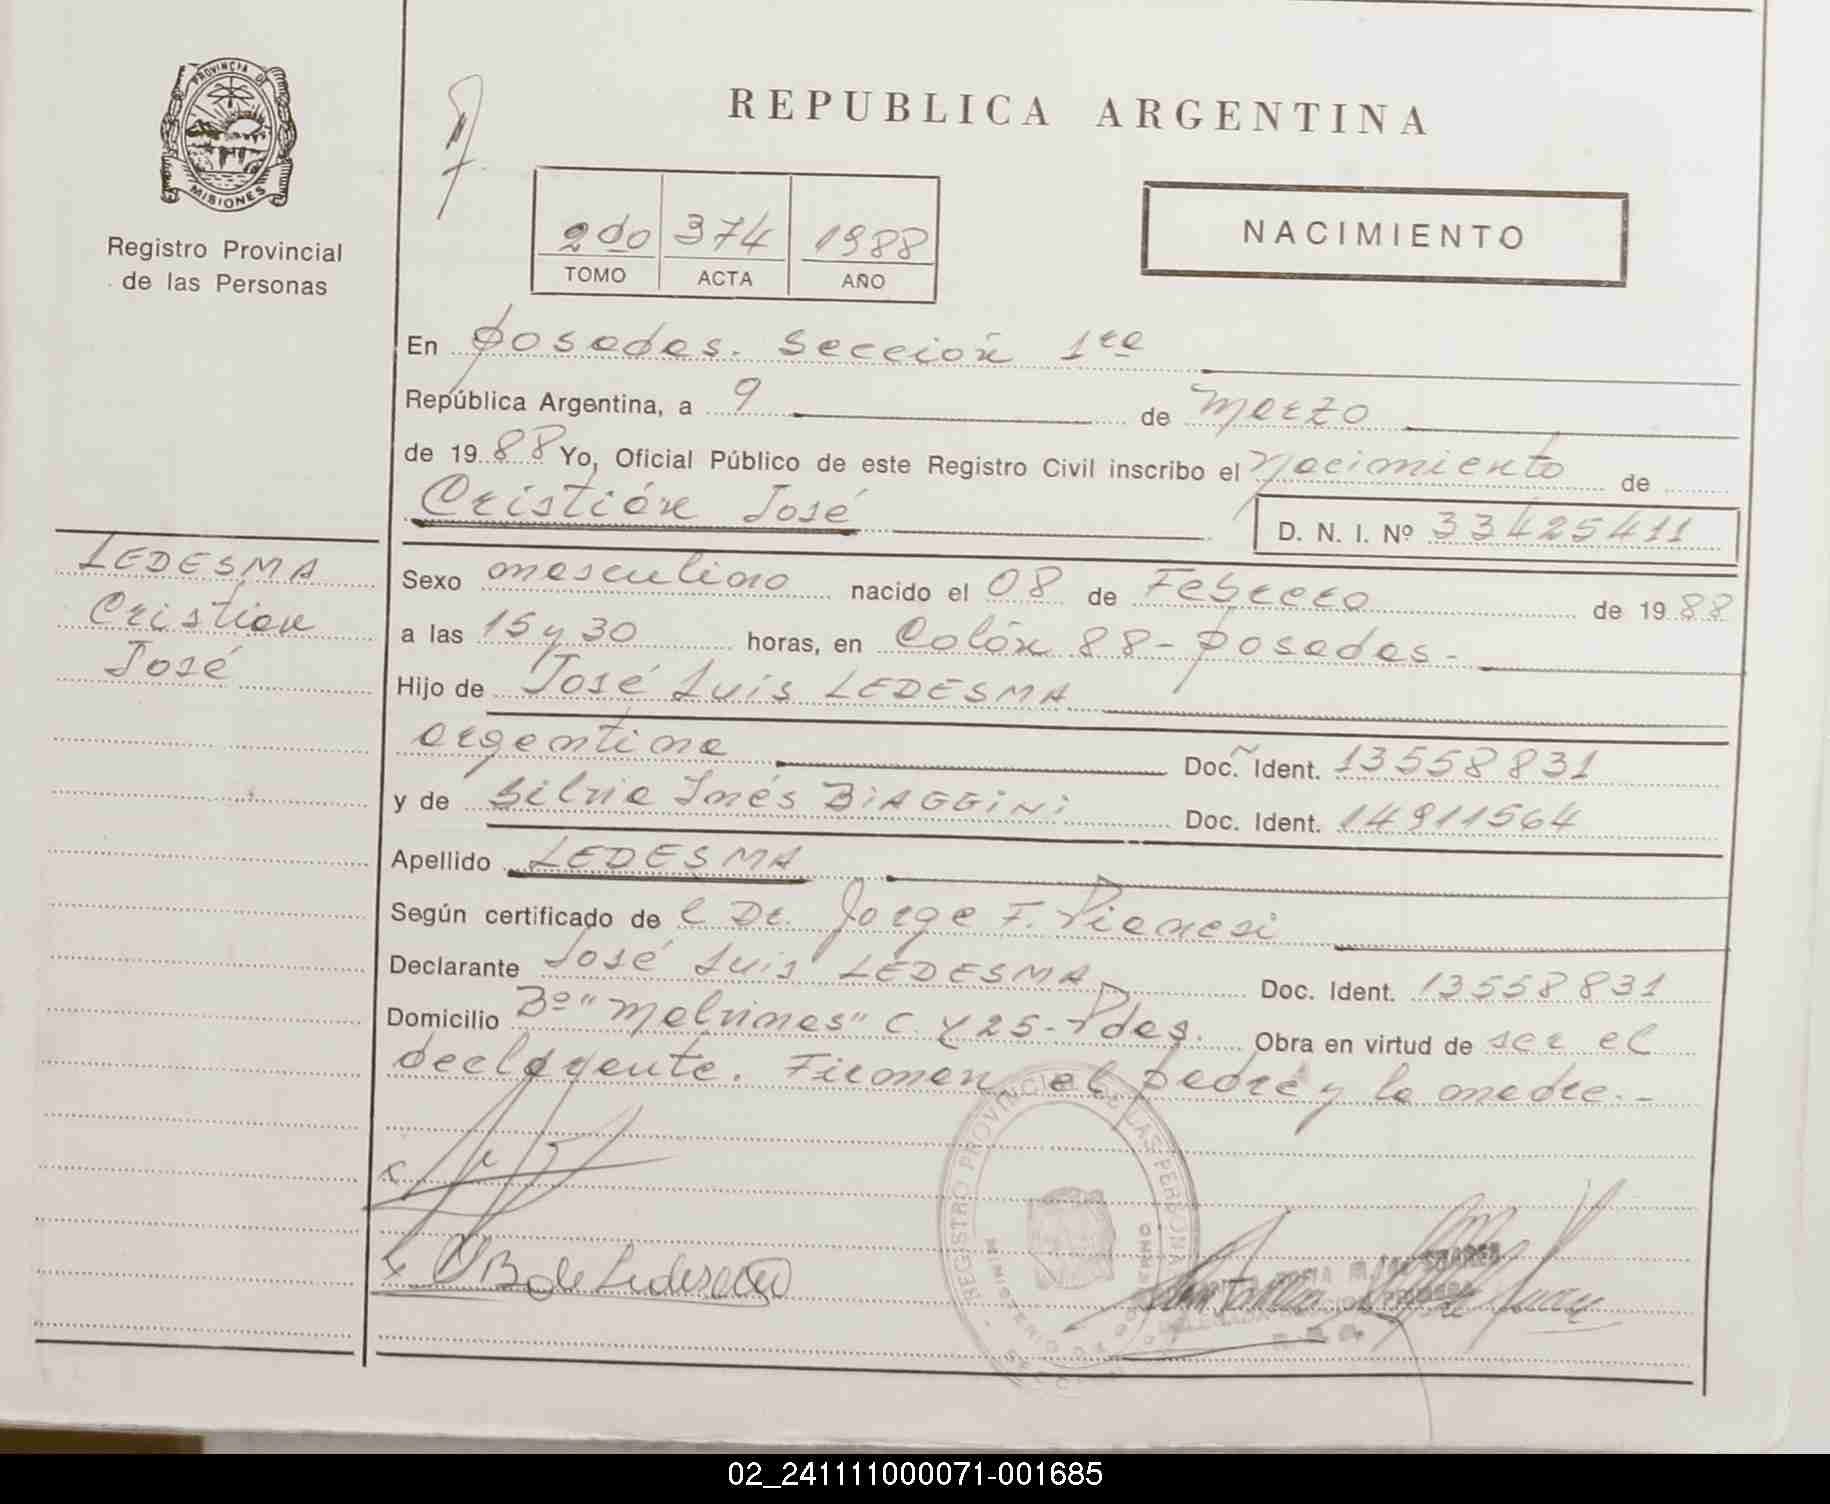 PROVINCIA DE
MISIONES
Registro Provincial
de las Personas
REPUBLICA ARGENTINA
2do 374 1988
TOMO ACTA AÑO
NACIMIENTO
En Posadas. Sección 1ra
República Argentina, a 9 de Marzo
de 1988 Yo, Oficial Público de este Registro Civil inscribo el Nacimiento de
Cristián José
D. N. I. Nº 33425411
LEDESMA
Cristian
José
Sexo masculino nacido el 08 de Febrero de 1988
a las 15 y 30 horas, en Colón 88 - Posadas -
Hijo de José Luis LEDESMA
argentina Doc. Ident. 13558831
y de Silvia Inés BiAGGiNi Doc. Ident. 14911564
Apellido LEDESMA
Según certificado de l Dr. Jorge F. Pianesi
Declarante José Luis LEDESMA Doc. Ident. 13558831
Domicilio Bº "Malvinas" C. Y 25 - Pdas. Obra en virtud de ser el
declarante. Firman el padre y la madre. -
REGISTRO PROVINCIAL DE LAS PERSONAS
MINISTERIO DE GOBIERNO
B de Ledesma
02_241111000071-001685